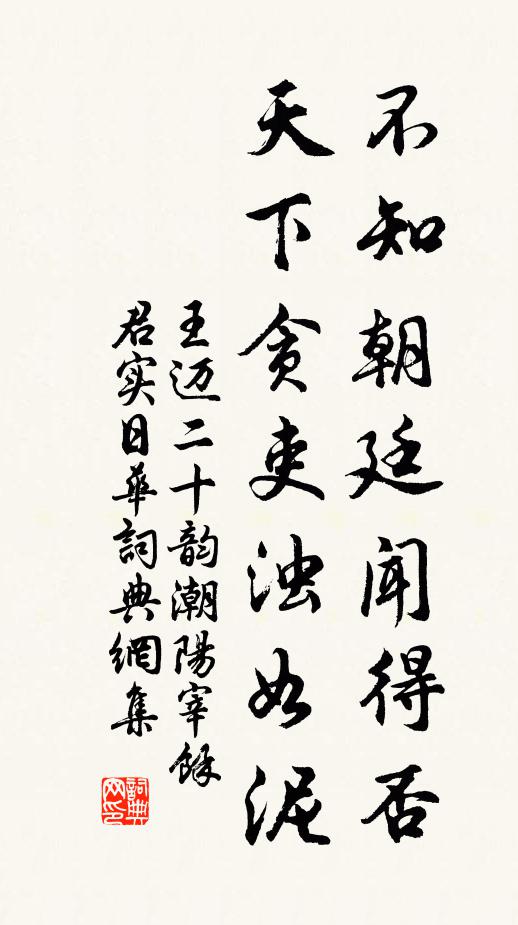 不知朝廷闻得否
天下贪吏浊如泥
王迈二十韵潮陽宰餘
君实日華詞典網集
詞典
网印